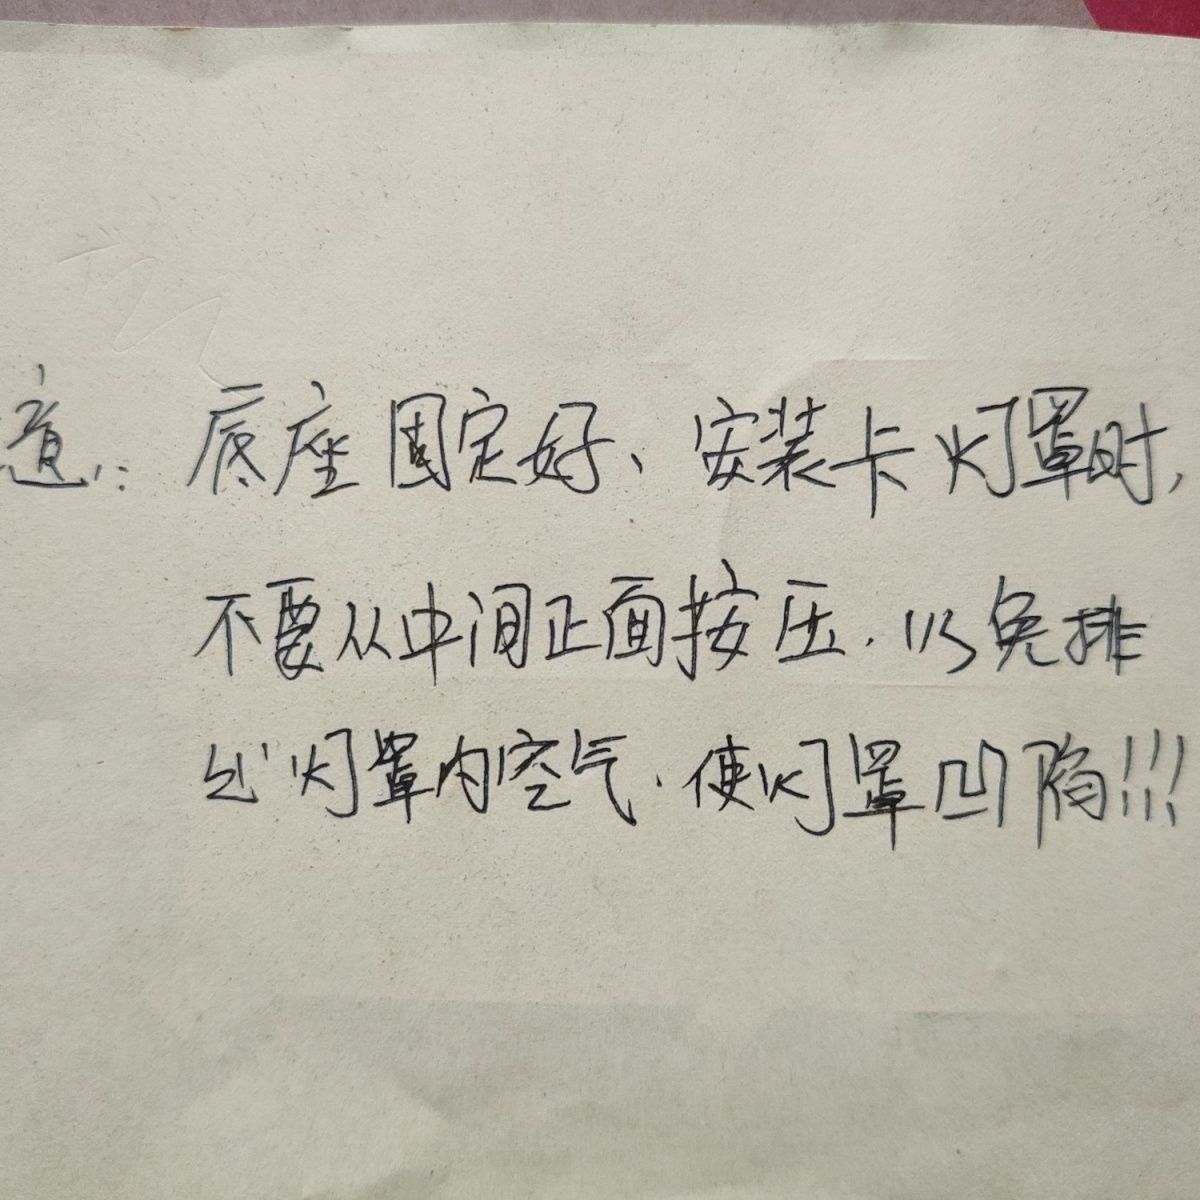 道: 底座固定好、安装卡灯罩时,
不要从中间正面按压.以免排
出灯罩内空气.使灯罩凹陷!!!